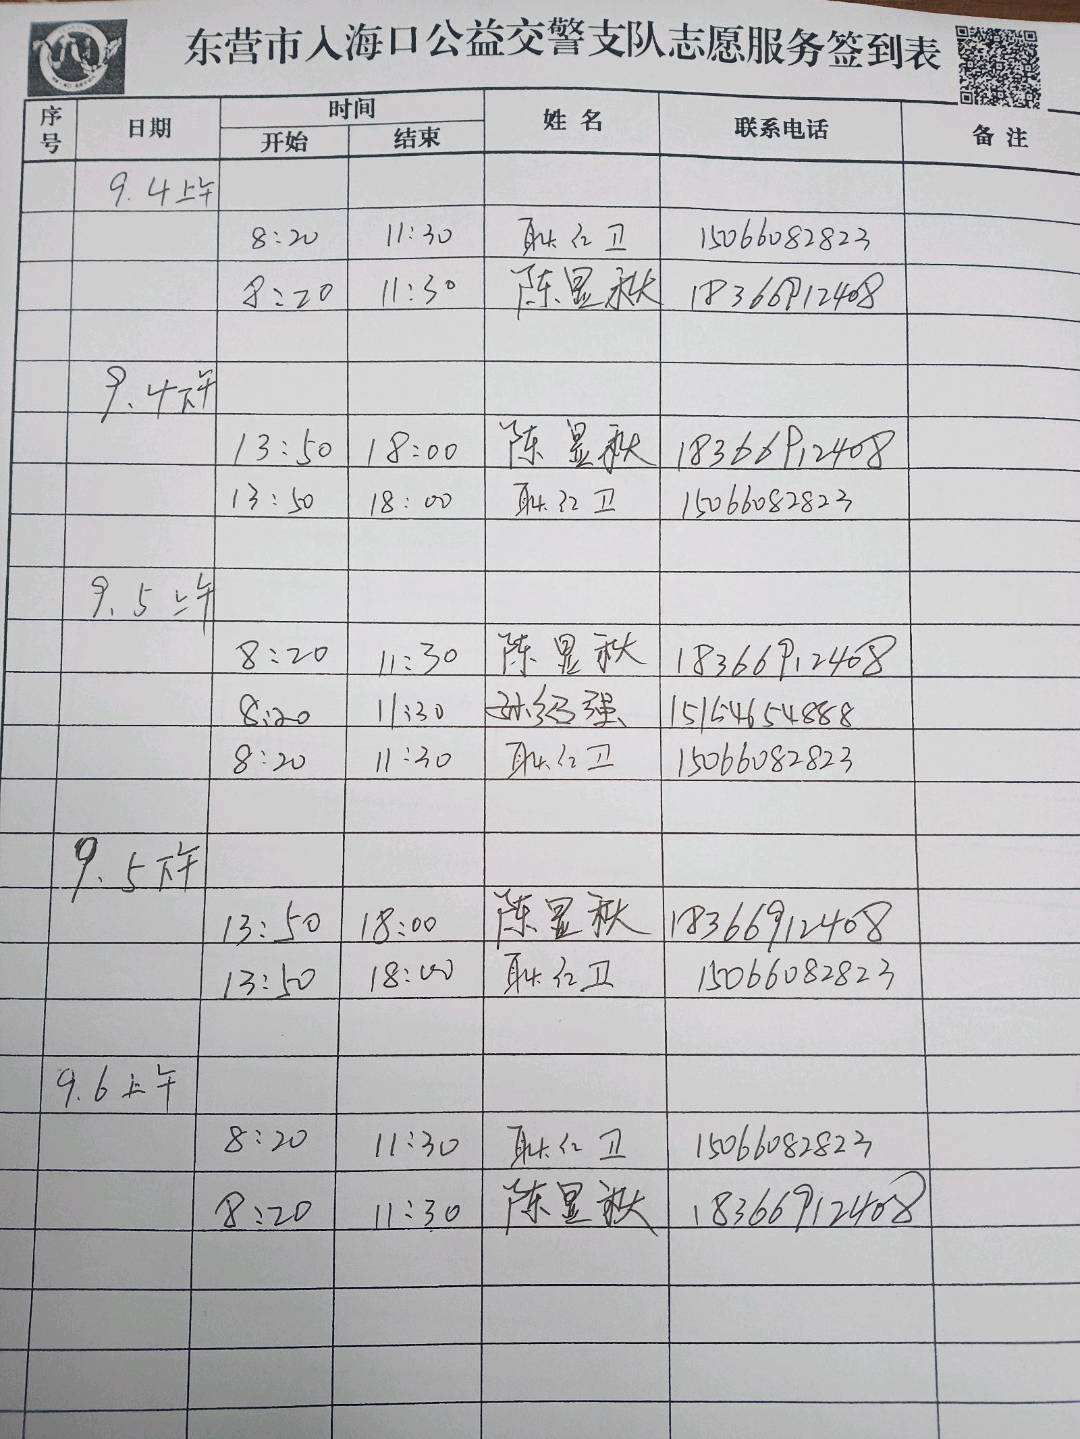 东营市入海口公益交警支队志愿服务签到表
序号 日期 时间 姓名 联系电话 备注
开始 结束
9.4上午
8:20 11:30 耿红卫 15066082823
8:20 11:30 陈显秋 18366912408
9.4下午
13:50 18:00 陈显秋 18366912408
13:50 18:00 耿红卫 15066082823
9.5上午
8:20 11:30 陈显秋 18366912408
8:20 11:30 孙绍强 15154654888
8:20 11:30 耿红卫 15066082823
9.5下午
13:50 18:00 陈显秋 18366912408
13:50 18:00 耿红卫 15066082823
9.6上午
8:20 11:30 耿红卫 15066082823
8:20 11:30 陈显秋 18366912408